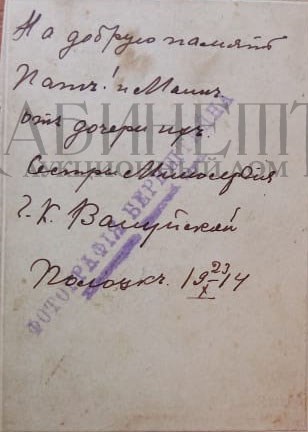 На добрую память
Папѣ! и Мамѣ
отъ дочери ихъ.
Сестры Милосердія
Г. К. Валуйской
Полоцкъ. 19 23/X 14
КАБИНЕТЪ
АУКЦИОННЫЙ ДОМ
ФОТОГРАФІЯ